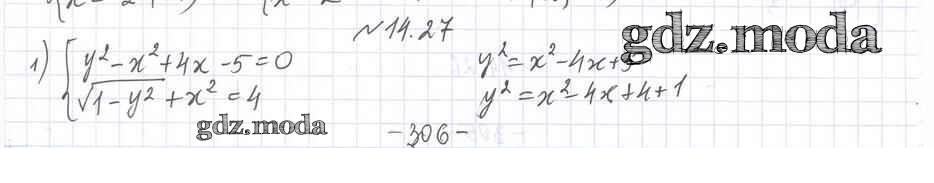 №14.27
gdz.moda
1) { y² - x² + 4x - 5 = 0
√1-y² + x² = 4
y² = x² - 4x + 5
y² = x² - 4x + 4 + 1
gdz.moda
-306-